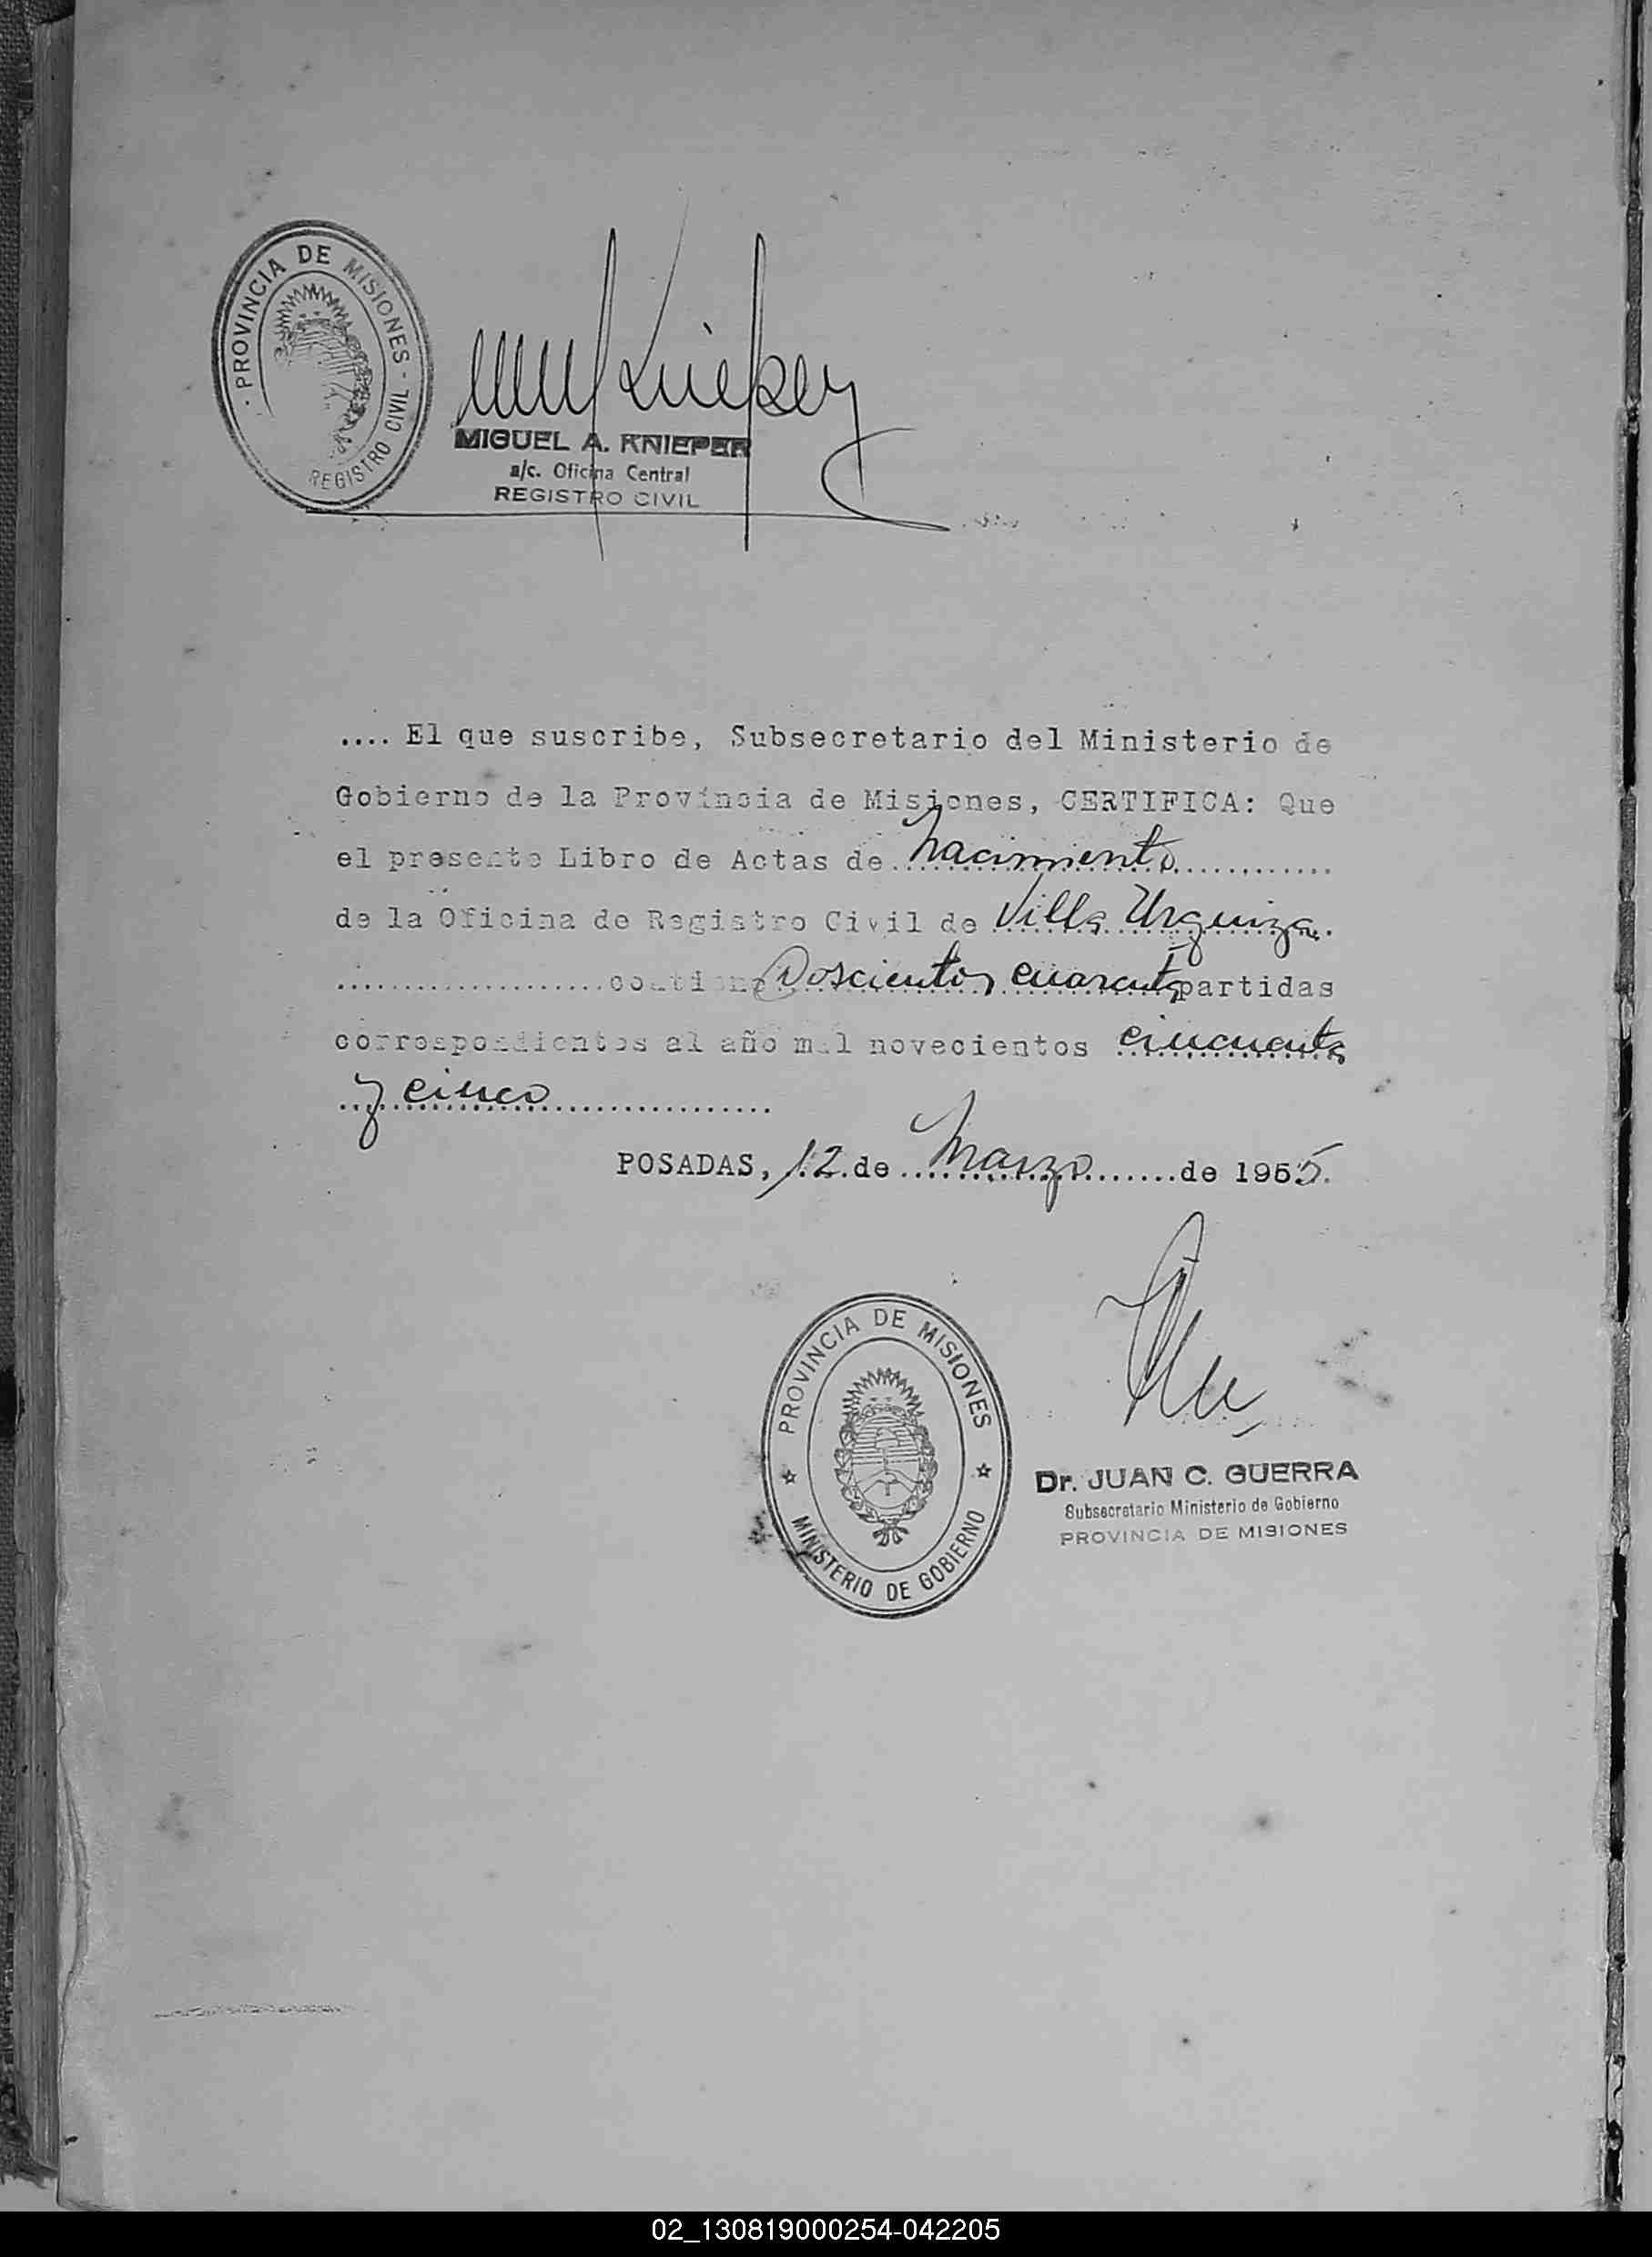 · PROVINCIA DE MISIONES -
REGISTRO CIVIL
Knieper
MIGUEL A. KNIEPER
a/c. Oficina Central
REGISTRO CIVIL
.... El que suscribe, Subsecretario del Ministerio de
Gobierno de la Provincia de Misiones, CERTIFICA: Que
el presente Libro de Actas de nacimiento
de la Oficina de Registro Civil de Villa Urquiza.
contiene Doscientos cuarenta partidas
correspondientes al año mil novecientos cincuenta
y cinco
POSADAS, 12 de Marzo de 1955.
PROVINCIA DE MISIONES
MINISTERIO DE GOBIERNO
Dr. JUAN C. GUERRA
Subsecretario Ministerio de Gobierno
PROVINCIA DE MISIONES
02_130819000254-042205